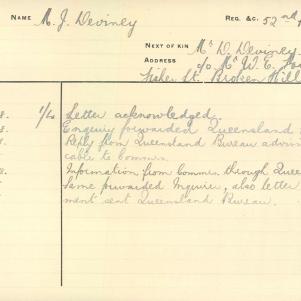 NAME M. J. Deviney REG. &C. 52nd
NEXT OF KIN Mr D. Deviney
ADDRESS c/o Mr W. E.
Fisher St. Broken Hill
8. 1/20 Letter acknowledged.
Enquiry forwarded Queensland
Reply from Queensland Bureau advis
cable to Commrs.
Information from Commrs. through Quee
same forwarded Inquirer, also letter
ment sent Queensland Bureau.